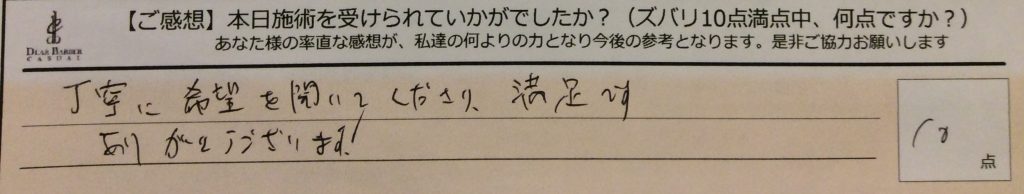 【ご感想】本日施術を受けられていかがでしたか？（ズバリ10点満点中、何点ですか？）
あなた様の率直な感想が、私達の何よりの力となり今後の参考となります。是非ご協力お願いします
DEAR BARBER
CASUAL
丁寧に希望を聞いてくださり、満足です
ありがとうございます!
10
点